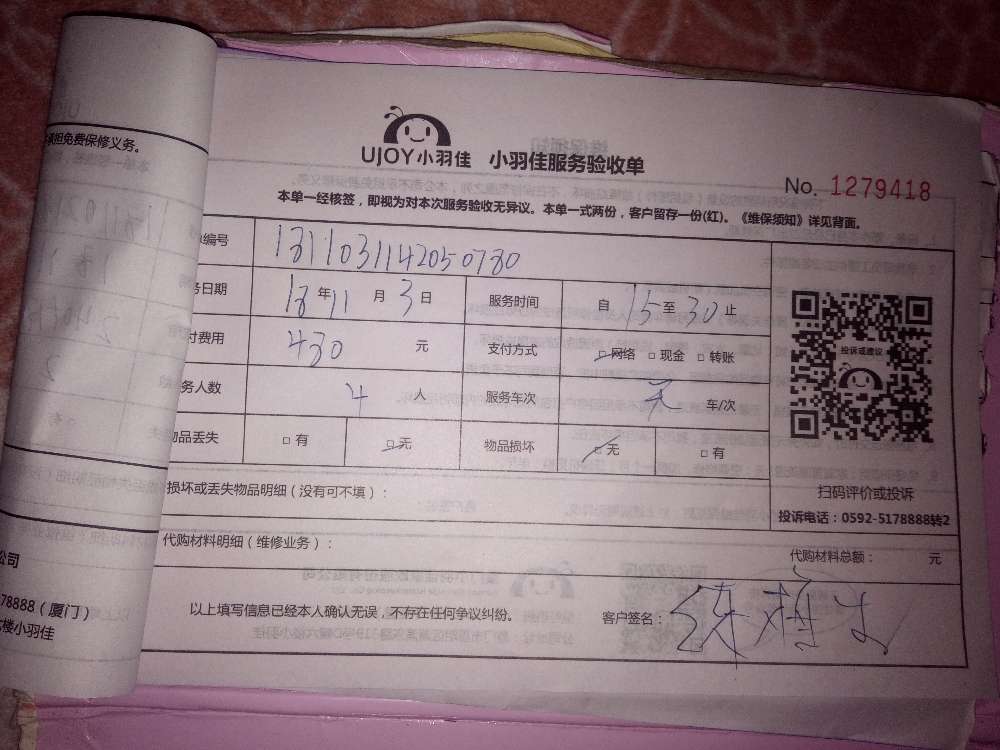 担免费保修义务。
UJOY小羽佳 小羽佳服务验收单
No. 1279418
本单一经核签，即视为对本次服务验收无异议。本单一式两份，客户留存一份(红)。《维保须知》详见背面。
编号 1811031142050780
务日期 18年11月3日 服务时间 自15至30止
付费用 480元 支付方式 □网络 □现金 □转账
务人数 4人 服务车次 无 车/次
物品丢失 □有 □无 物品损坏 □无 □有
投诉或建议
扫码评价或投诉
投诉电话：0592-5178888转2
损坏或丢失物品明细（没有可不填）：
代购材料明细（维修业务）： 代购材料总额： 元
以上填写信息已经本人确认无误，不存在任何争议纠纷。 客户签名：
公司
78888（厦门）
楼小羽佳